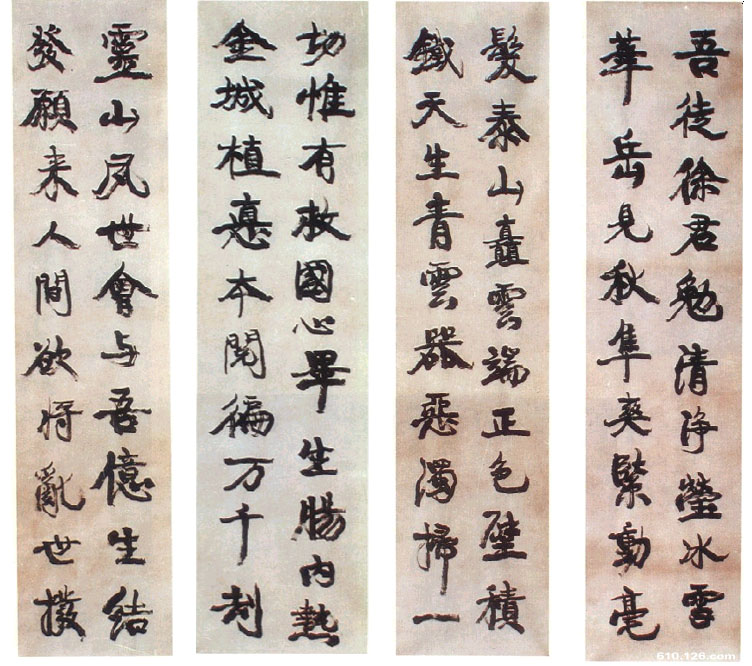 吾徒徐君勉清净瑩冰雪
華岳見秋隼爽緊動亳
髮泰山矗雲端正色壁積
鐵天生青雲器惡濁掃一
切惟有救國心畢生腸内熱
金城植悳本閱徧万千刦
靈山夙世會与吾億生結
發願来人間欲将亂世撥
510.126.com